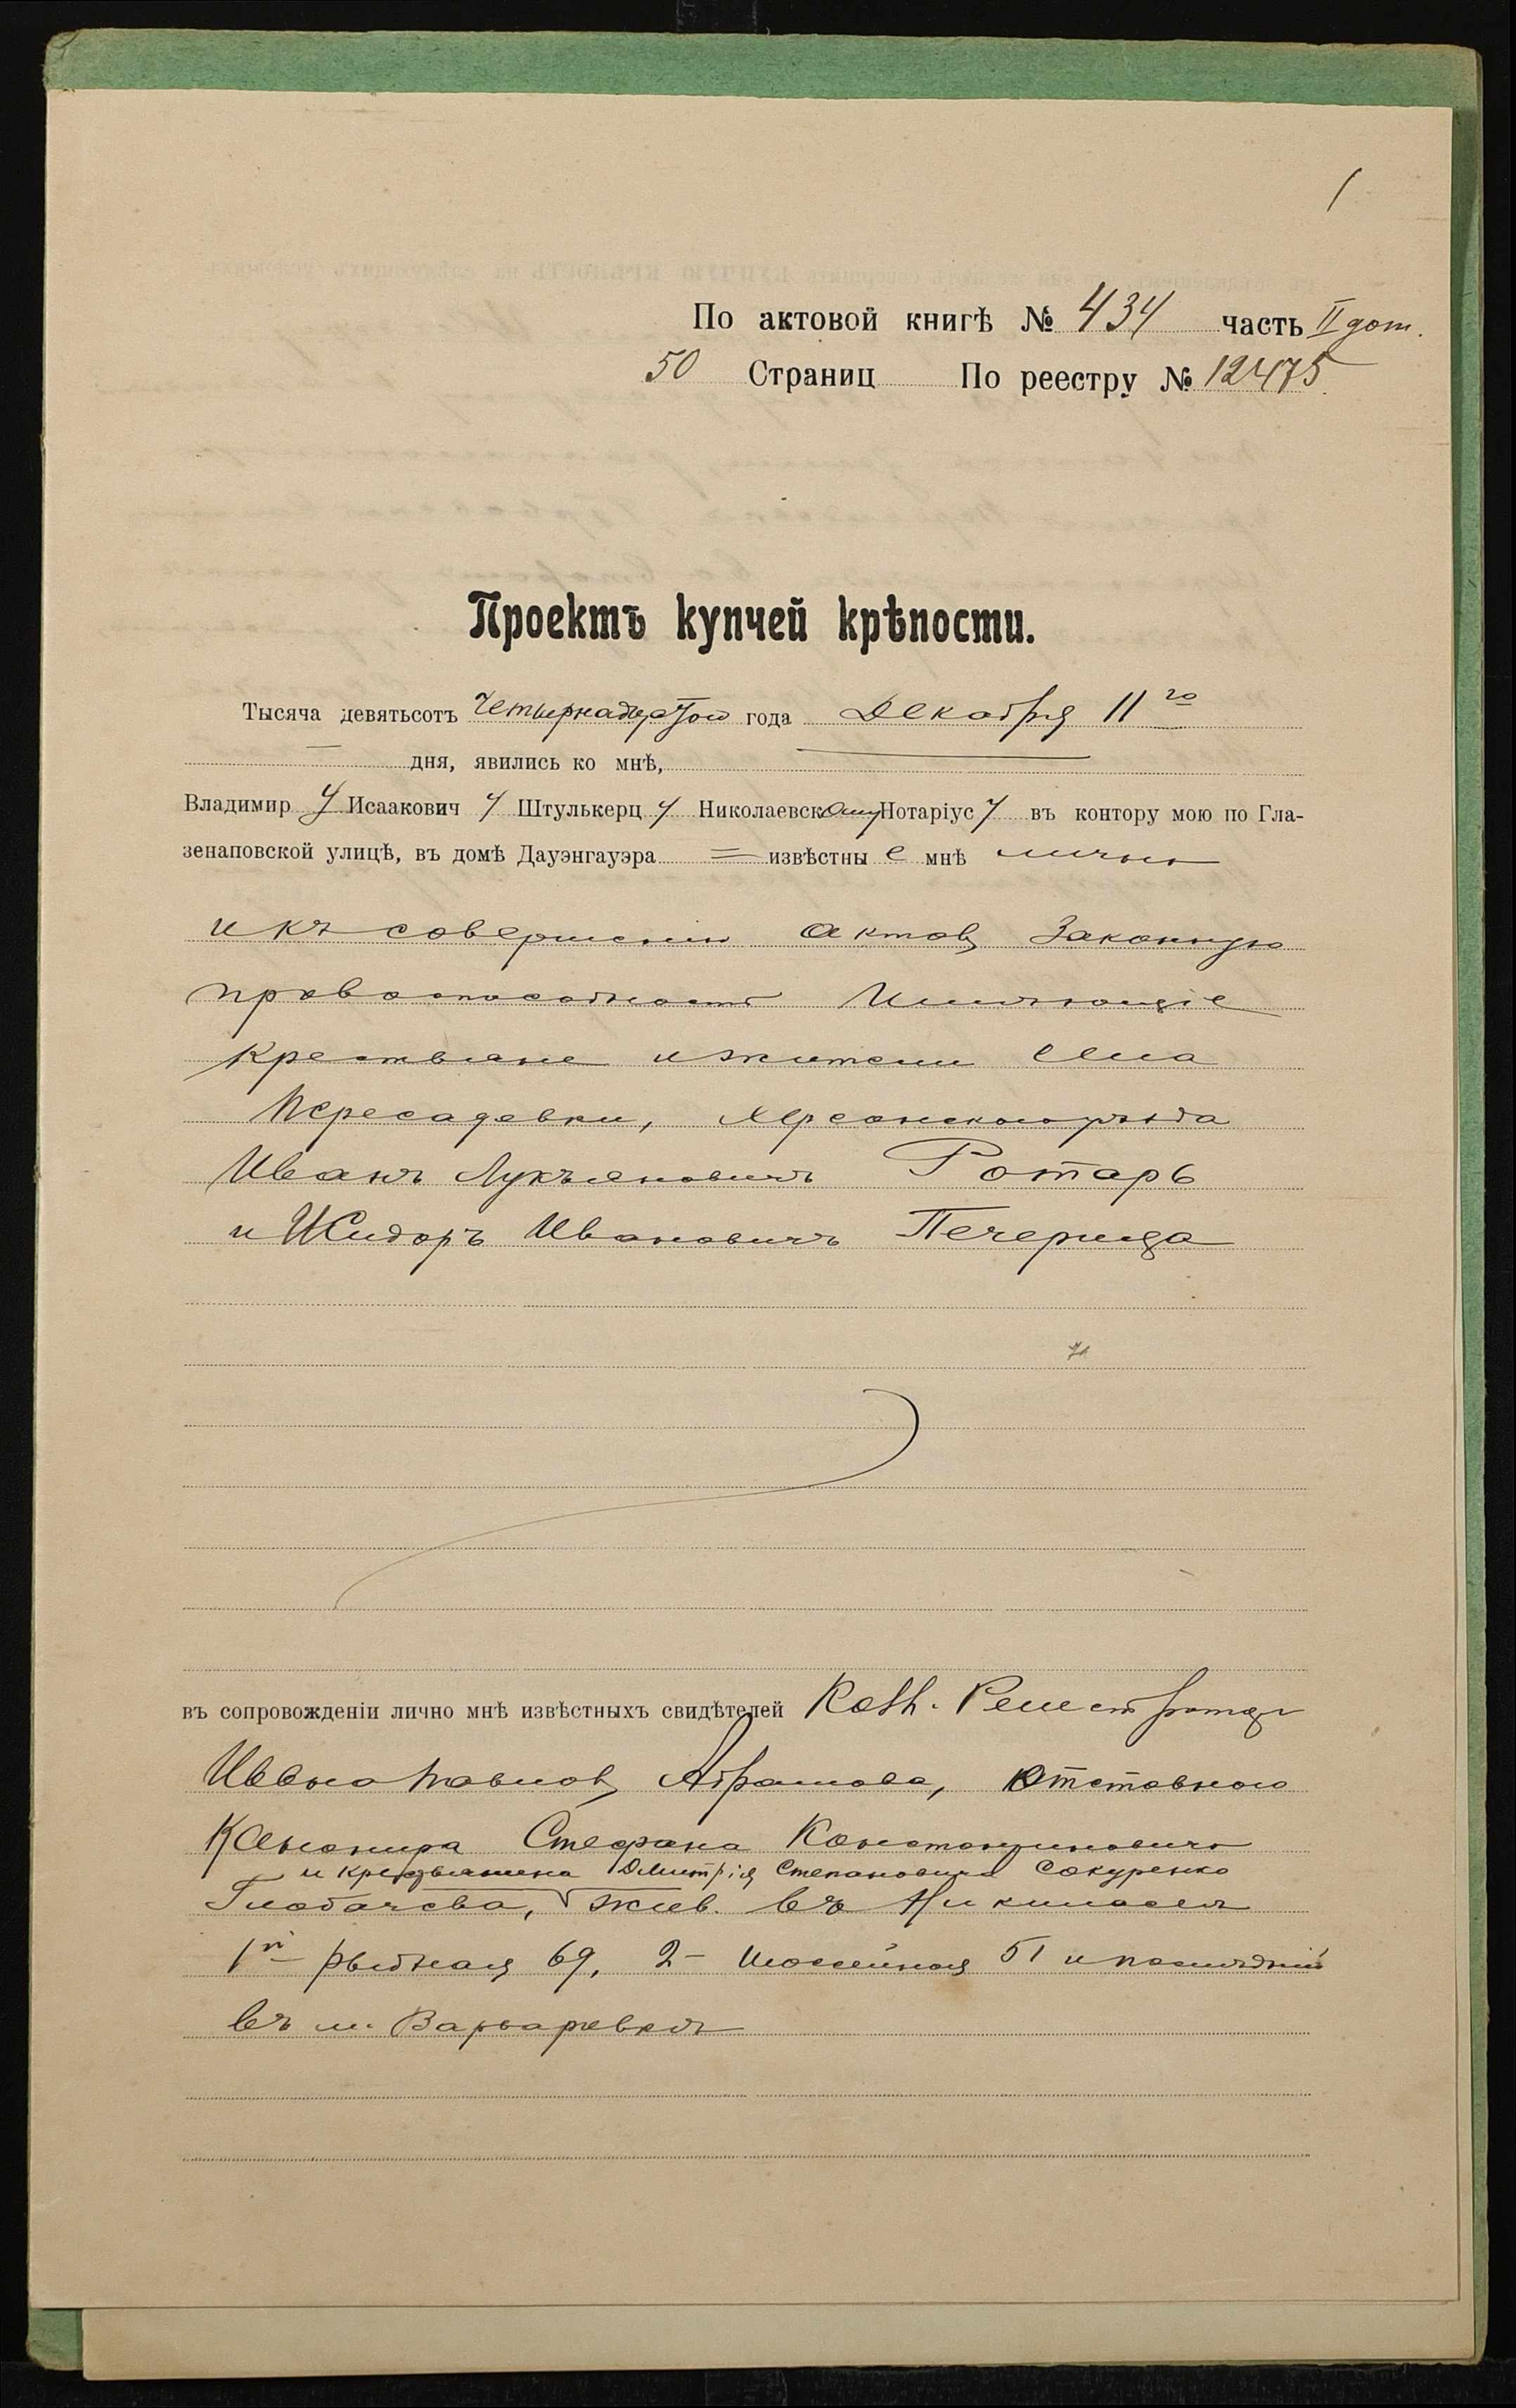 1
По актовой книгѣ № 434 часть II дот.
50 Страниц По реестру № 12475
Проектъ купчей крѣпости.
Тысяча девятьсотъ четырнадцатого года Декабря 11го
дня, явились ко мнѣ,
Владимир у Исаакович у Штулькерц у Николаевскому Нотаріус у въ контору мою по Гла-
зенаповской улицѣ, въ домѣ Дауэнгауэра = извѣстны е мнѣ лично
и къ совершенію актовъ законную
правоспособность имѣющіе
крестьяне и жители села
Пересадовки, Херсонского уѣзда
Иванъ Лукьяновичъ Ротарь
и Исидоръ Ивановичъ Печерица
въ сопровожденіи лично мнѣ извѣстныхъ свидѣтелей
Ивана Павлов. Абрамова, отставного
Стефана Константиновича
и крестьянина Дмитрія Степановича Сокуренко
Глобачева, жив. въ Николаевѣ
1й Рыбная 69, 2- Шоссейная 51 и послѣдній
въ м. Варваровкѣ